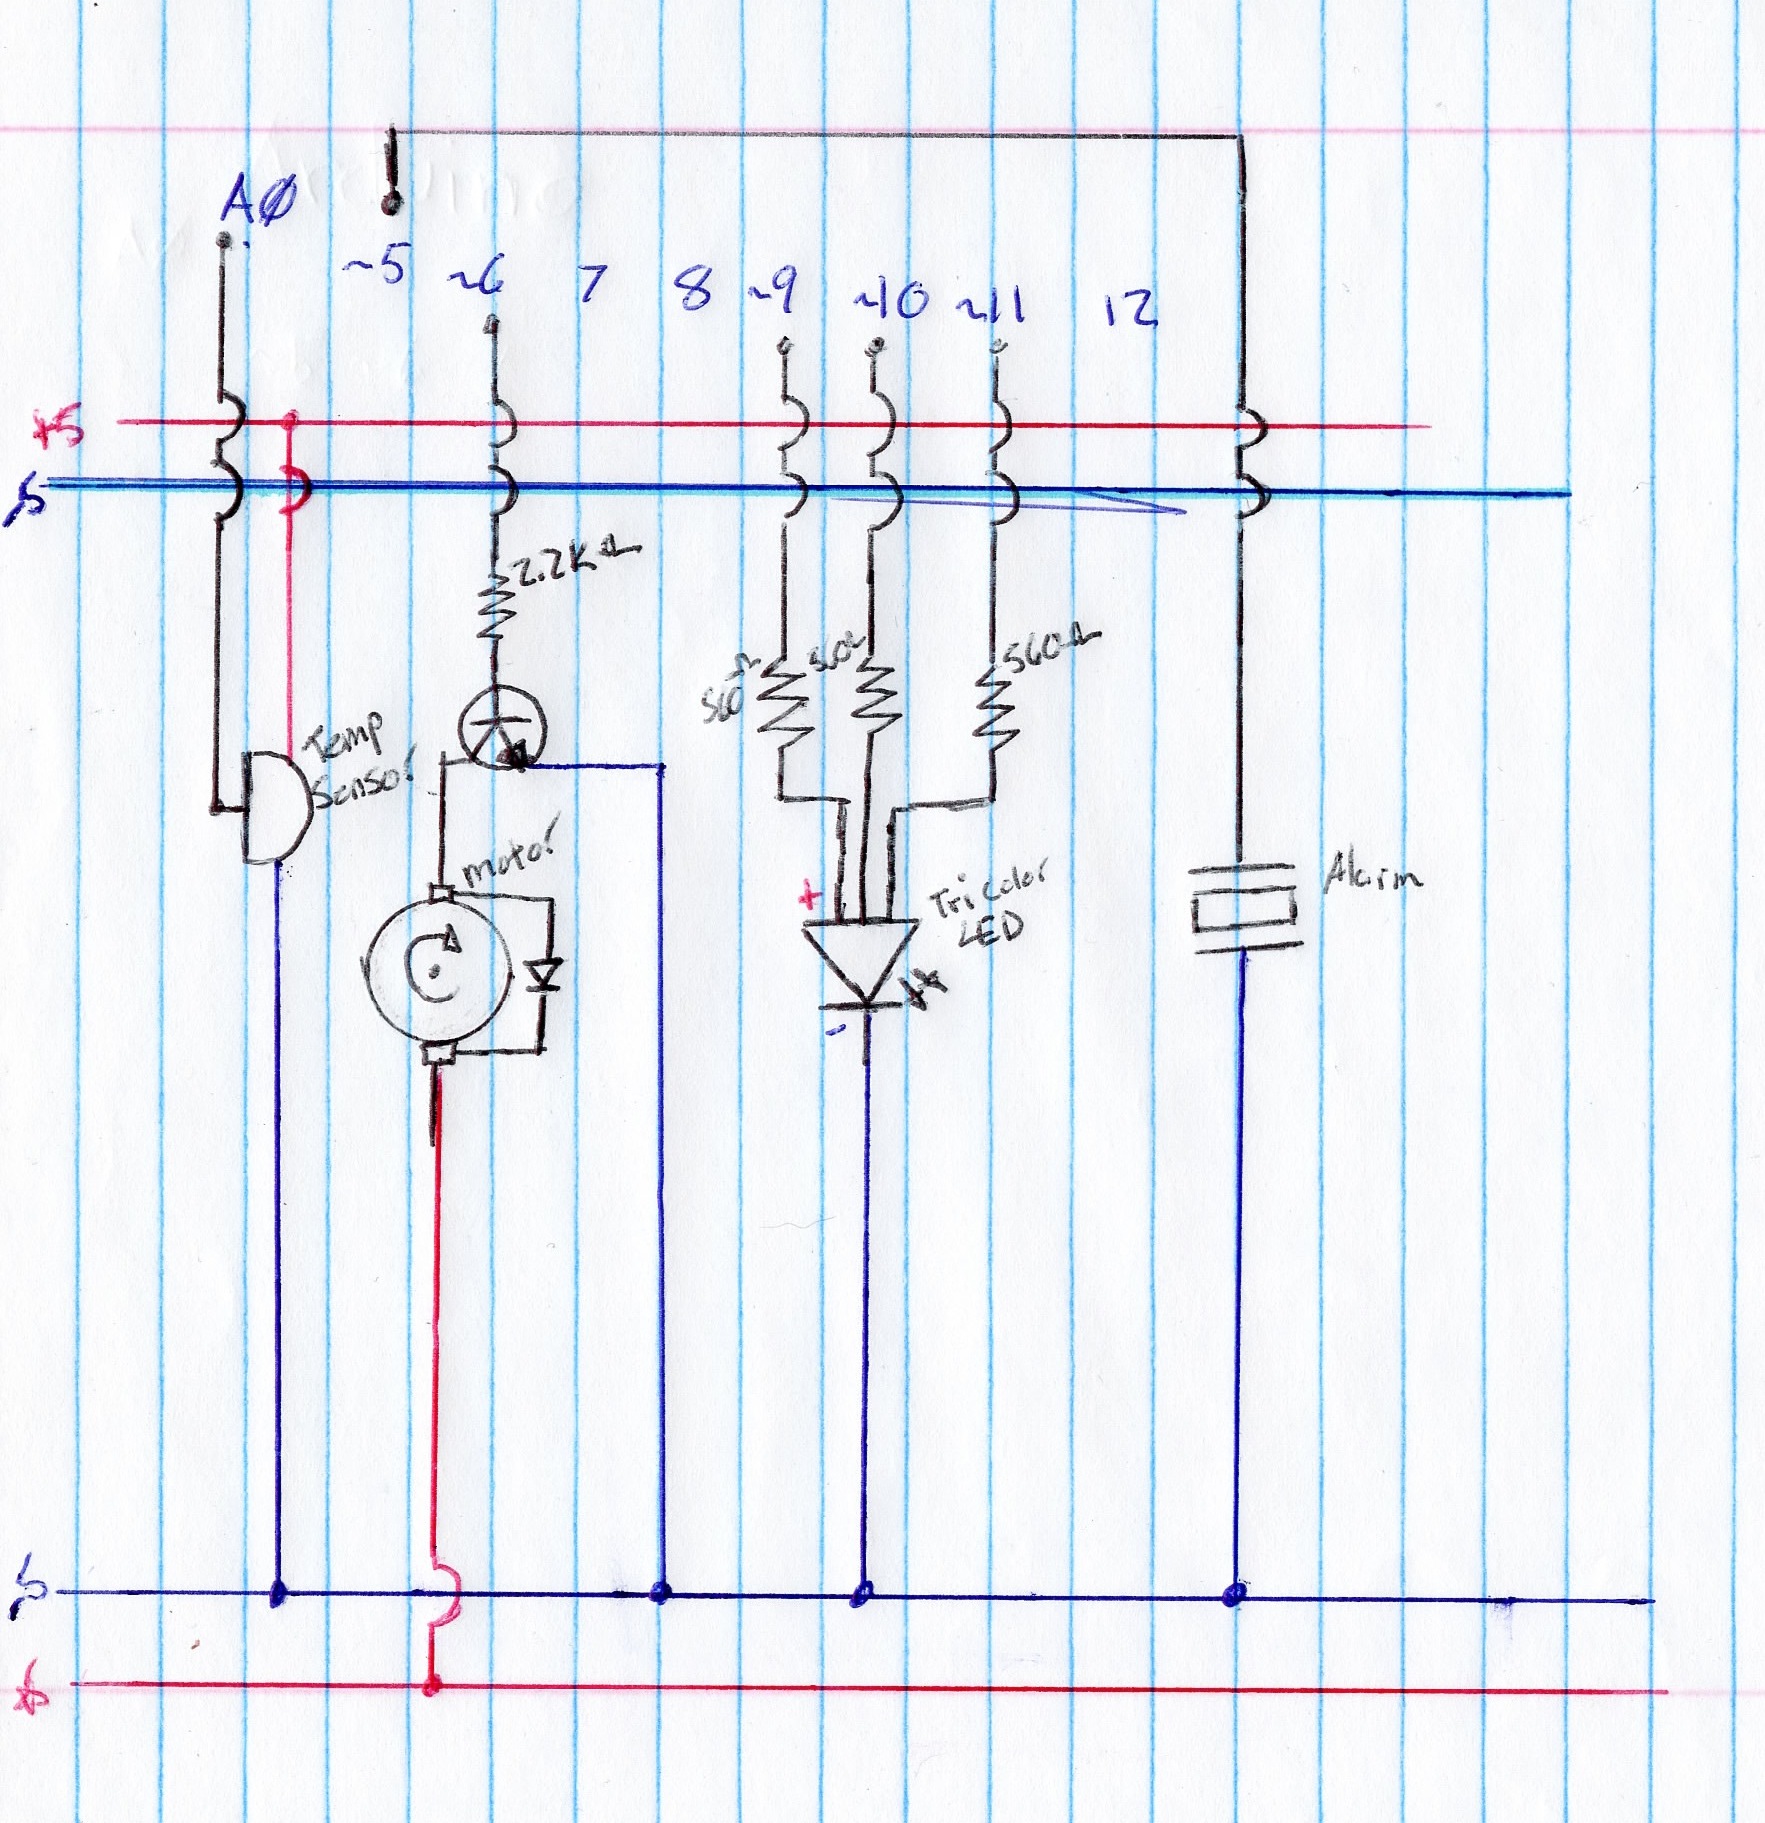 AØ
~5 ~6 7 8 ~9 ~10 ~11 12
+5
2.2KΩ
560Ω 560Ω 560Ω
Temp
Sensor
motor
+
Tricolor
LED
-
Alarm